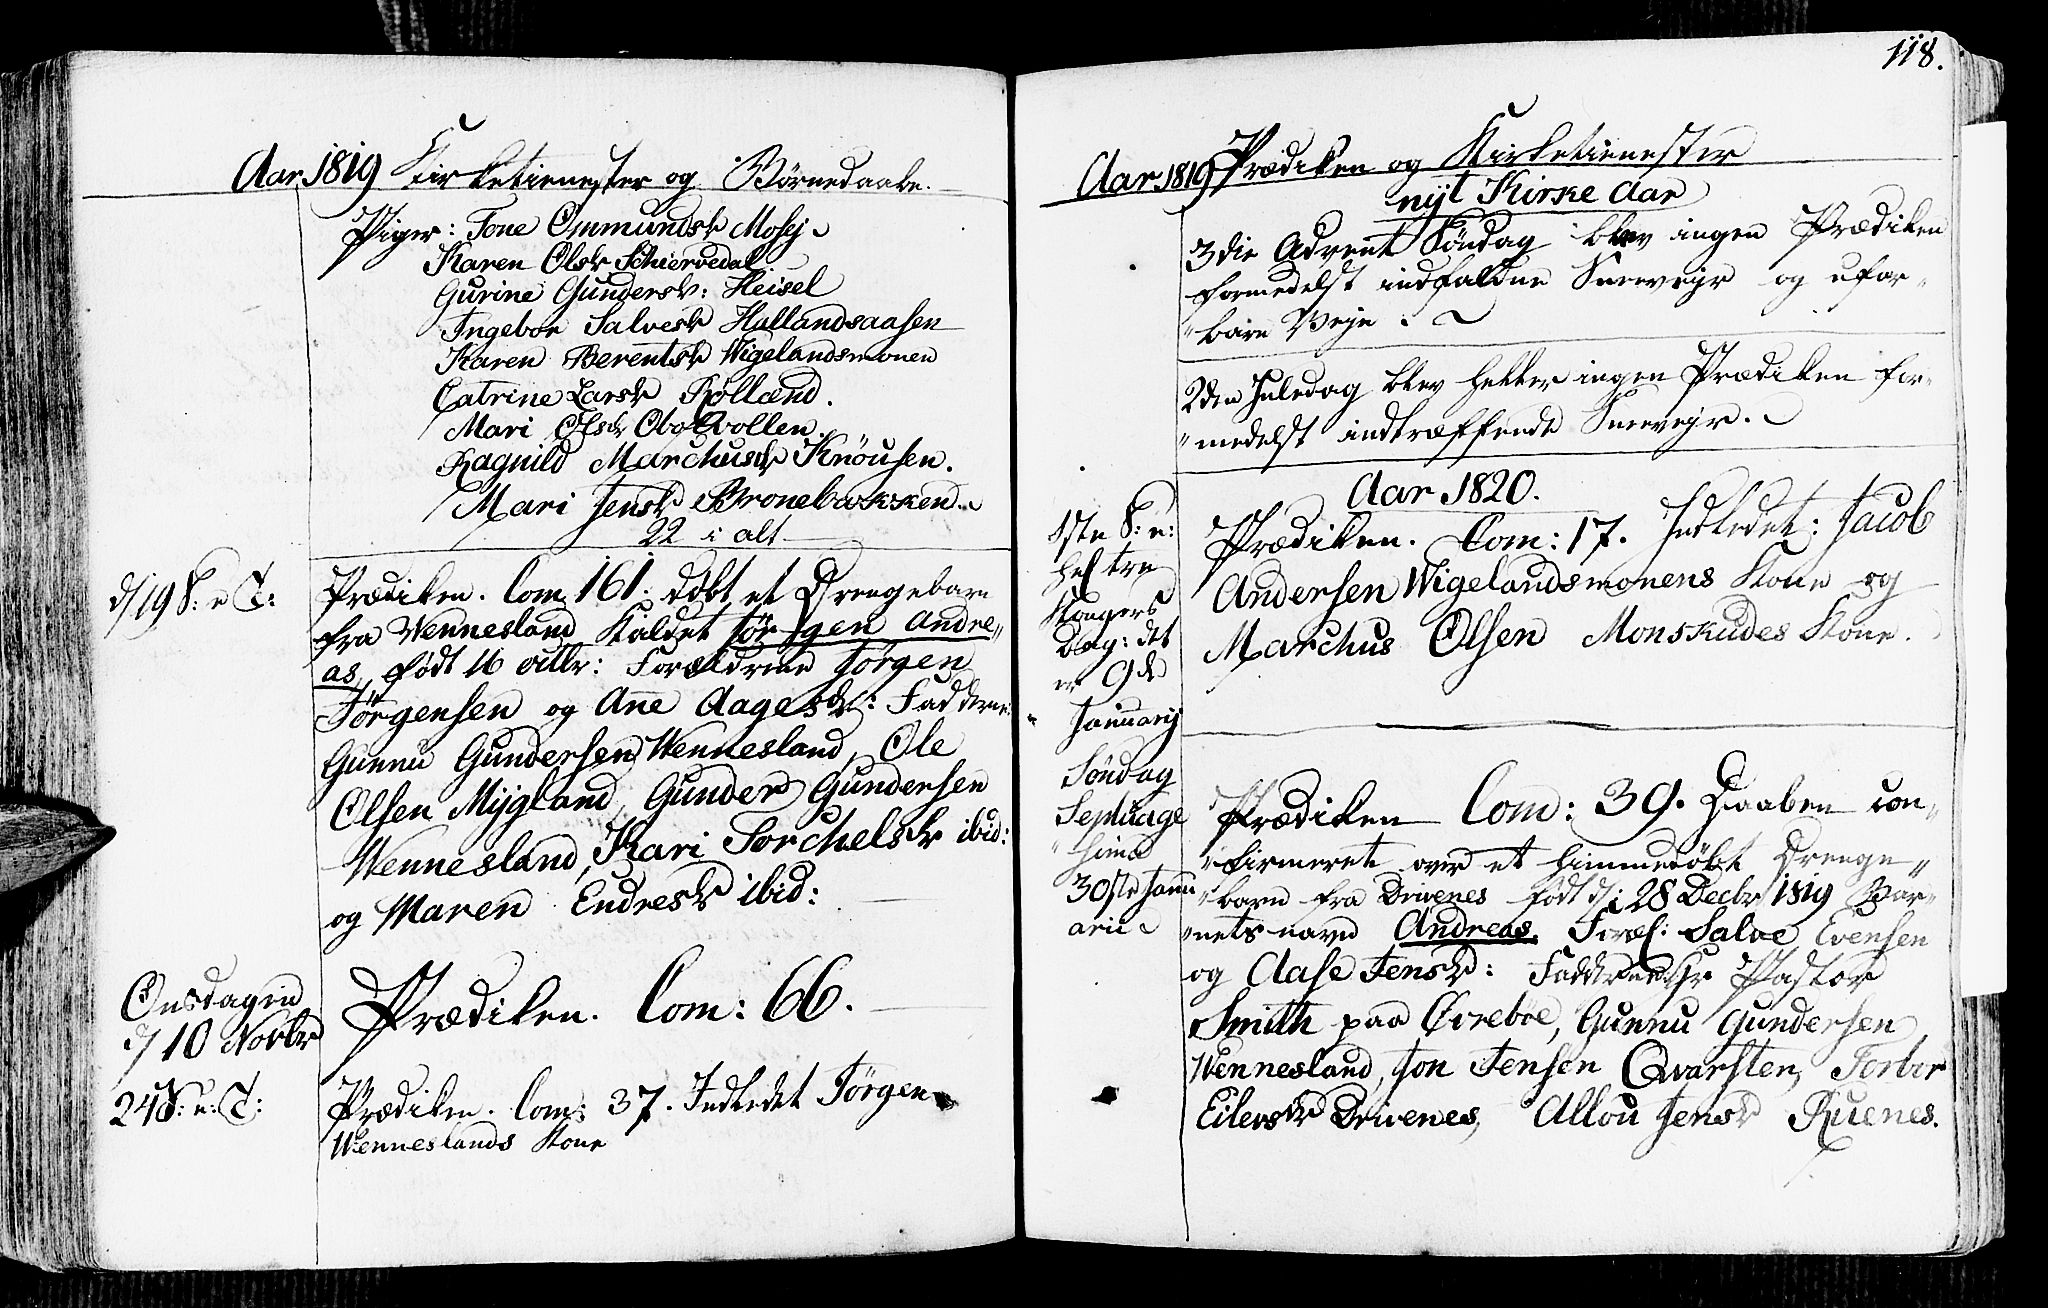 Aar 1819 Kirketienester og Börnedaabe.
Piger: Tone Omundsdr Mosej
Karen Olsdr Schiervedal
Gurine Gundersdr: Heisel
Ingebor Salvesdr Hallandsaasen
Karen Berentsdr Wigelandsmonen
Catrine Larsdr Rölland.
Mari Olsdr
Ragnild Marchusdr Knöusen.
Mari Jensdr Bronebakken
22 i alt
d/19 S: e T:
Prædiken. Com. 161. döbt et Drengebarn
fra Wennesland kaldet Jörgen Andre„
as, födt 16 octbr: Forældrene Jörgen
Jörgensen og Ane Aagesdr: Fadderne:
Gunnu Gundersen Wennesland, Ole
Olsen Mÿgland, Gunder Gundersen
Wennesland, Kari Torchelsdr ibid:
og Maren Endresdr ibid:
Onsdagen
d/ 10 Novbr
Prædiken. Com: 66.
24 S: e: T:
Prædiken. Com: 37. Indledet Jörgen
Wenneslands Kone
118.
Aar 1819 Prædiken og Kirketienester
nyt Kirke Aar
3die Advent Söndag blev ingen Prædiken
formedelst indfaldne Sneevejr og ufar„
„bare Veje.
2den Juledag blev heller ingen Prædiken for„
„medelst indtræffende Sneevejr.
Aar 1820.
1ste S: e:
hel tre
Kongers
Dag: det
er 9d
Januarij
Prædiken. Com: 17. Indledet: Jacob
Andersen Wigelandsmonens Kone og
Marchus Olsen Monskudes Kone.
Söndag
Septuage
„sima
30ste Janu
arii
Prædiken Com: 39. Daaben con„
„firmeret over et hjemmedöbt Drenge„
„barn fra Drivenes födt d: 28 Decbr 1819 Bar„
„nets navn Andreas. Foræl: Salve Evensen
og Aase Jensdr: Fadderne Hr Pastor
Smith paa Övreböe, Gunnu Gundersen
Wennesland, Jon Jensen Qvarsten, Torbor
Eilevsdr Drivenes, Allou Jensdr Ruenes.